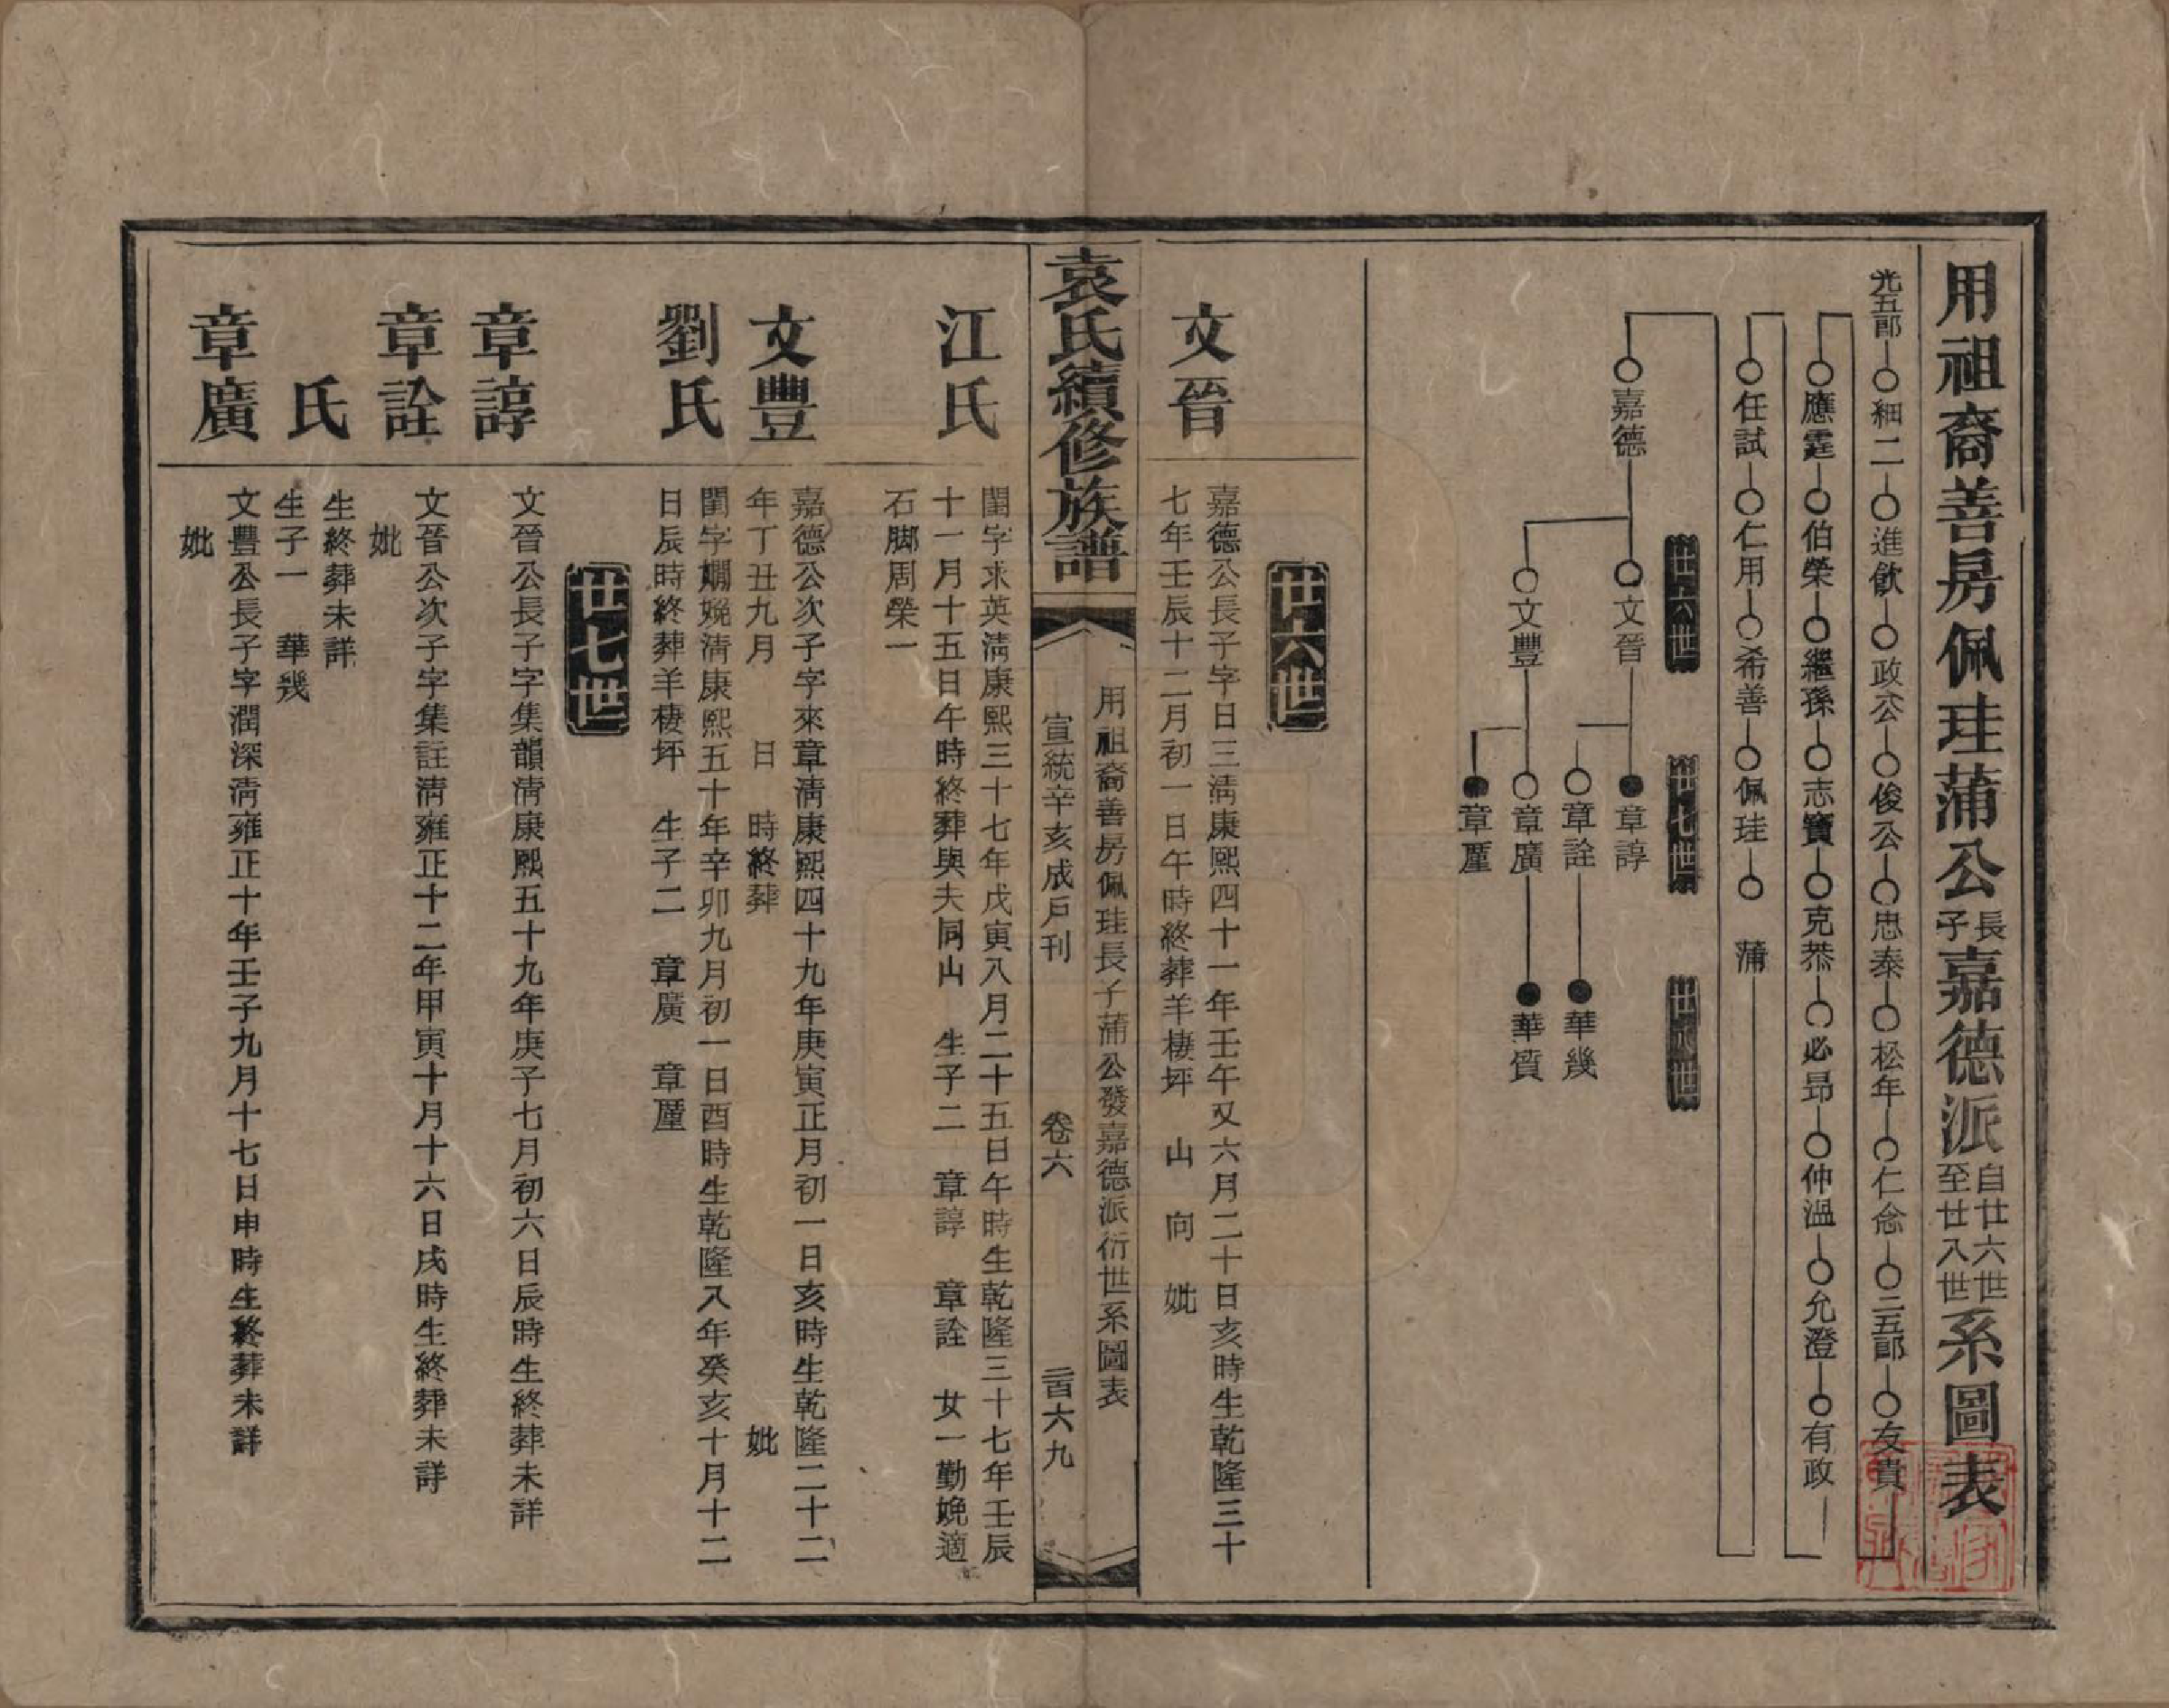 用祖裔善房佩珪蒲公長子嘉德派自廿六世至廿八世系圖表
光五郎 細二 進歛 政公 俊公 忠泰 松年 仁念 三五郎 友貴
應霆 伯榮 繼孫 志寶 克恭 必昂 仲溫 允澄 有政
任試 仁用 希善 佩珪 蒲
廿六世 廿七世 廿八世
嘉德 文晉 章諄
章詮 華幾
文豐 章廣 華質
章厘
廿六世
文晉
嘉德公長子字日三淸康熙四十一年壬午又六月二十日亥時生乾隆三十
七年壬辰十二月初一日午時終葬羊棲坪 山 向 妣
袁氏續修族譜
用祖裔善房佩珪長子蒲公發嘉德派衍世系圖表
宣統辛亥成戶刊 卷六 三百六九
江氏
閨字求英淸康熙三十七年戊寅八月二十五日午時生乾隆三十七年壬辰
十一月十五日午時終葬與夫同山 生子二 章諄 章詮 女一勤娩適
石脚周榮一
文豐
嘉德公次子字來章淸康熙四十九年庚寅正月初一日亥時生乾隆二十二
年丁丑九月 日 時終葬 妣
劉氏
閨字嫻娩淸康熙五十年辛卯九月初一日酉時生乾隆八年癸亥十月十二
日辰時終葬羊棲坪 生子二 章廣 章厘
廿七世
章諄
文晉公長子字集韻淸康熙五十九年庚子七月初六日辰時生終葬未詳
章詮
文晉公次子字集註淸雍正十二年甲寅十月十六日戌時生終葬未詳
妣
氏
生終葬未詳
生子一 華幾
章廣
文豐公長子字潤深淸雍正十年壬子九月十七日申時生終葬未詳
妣